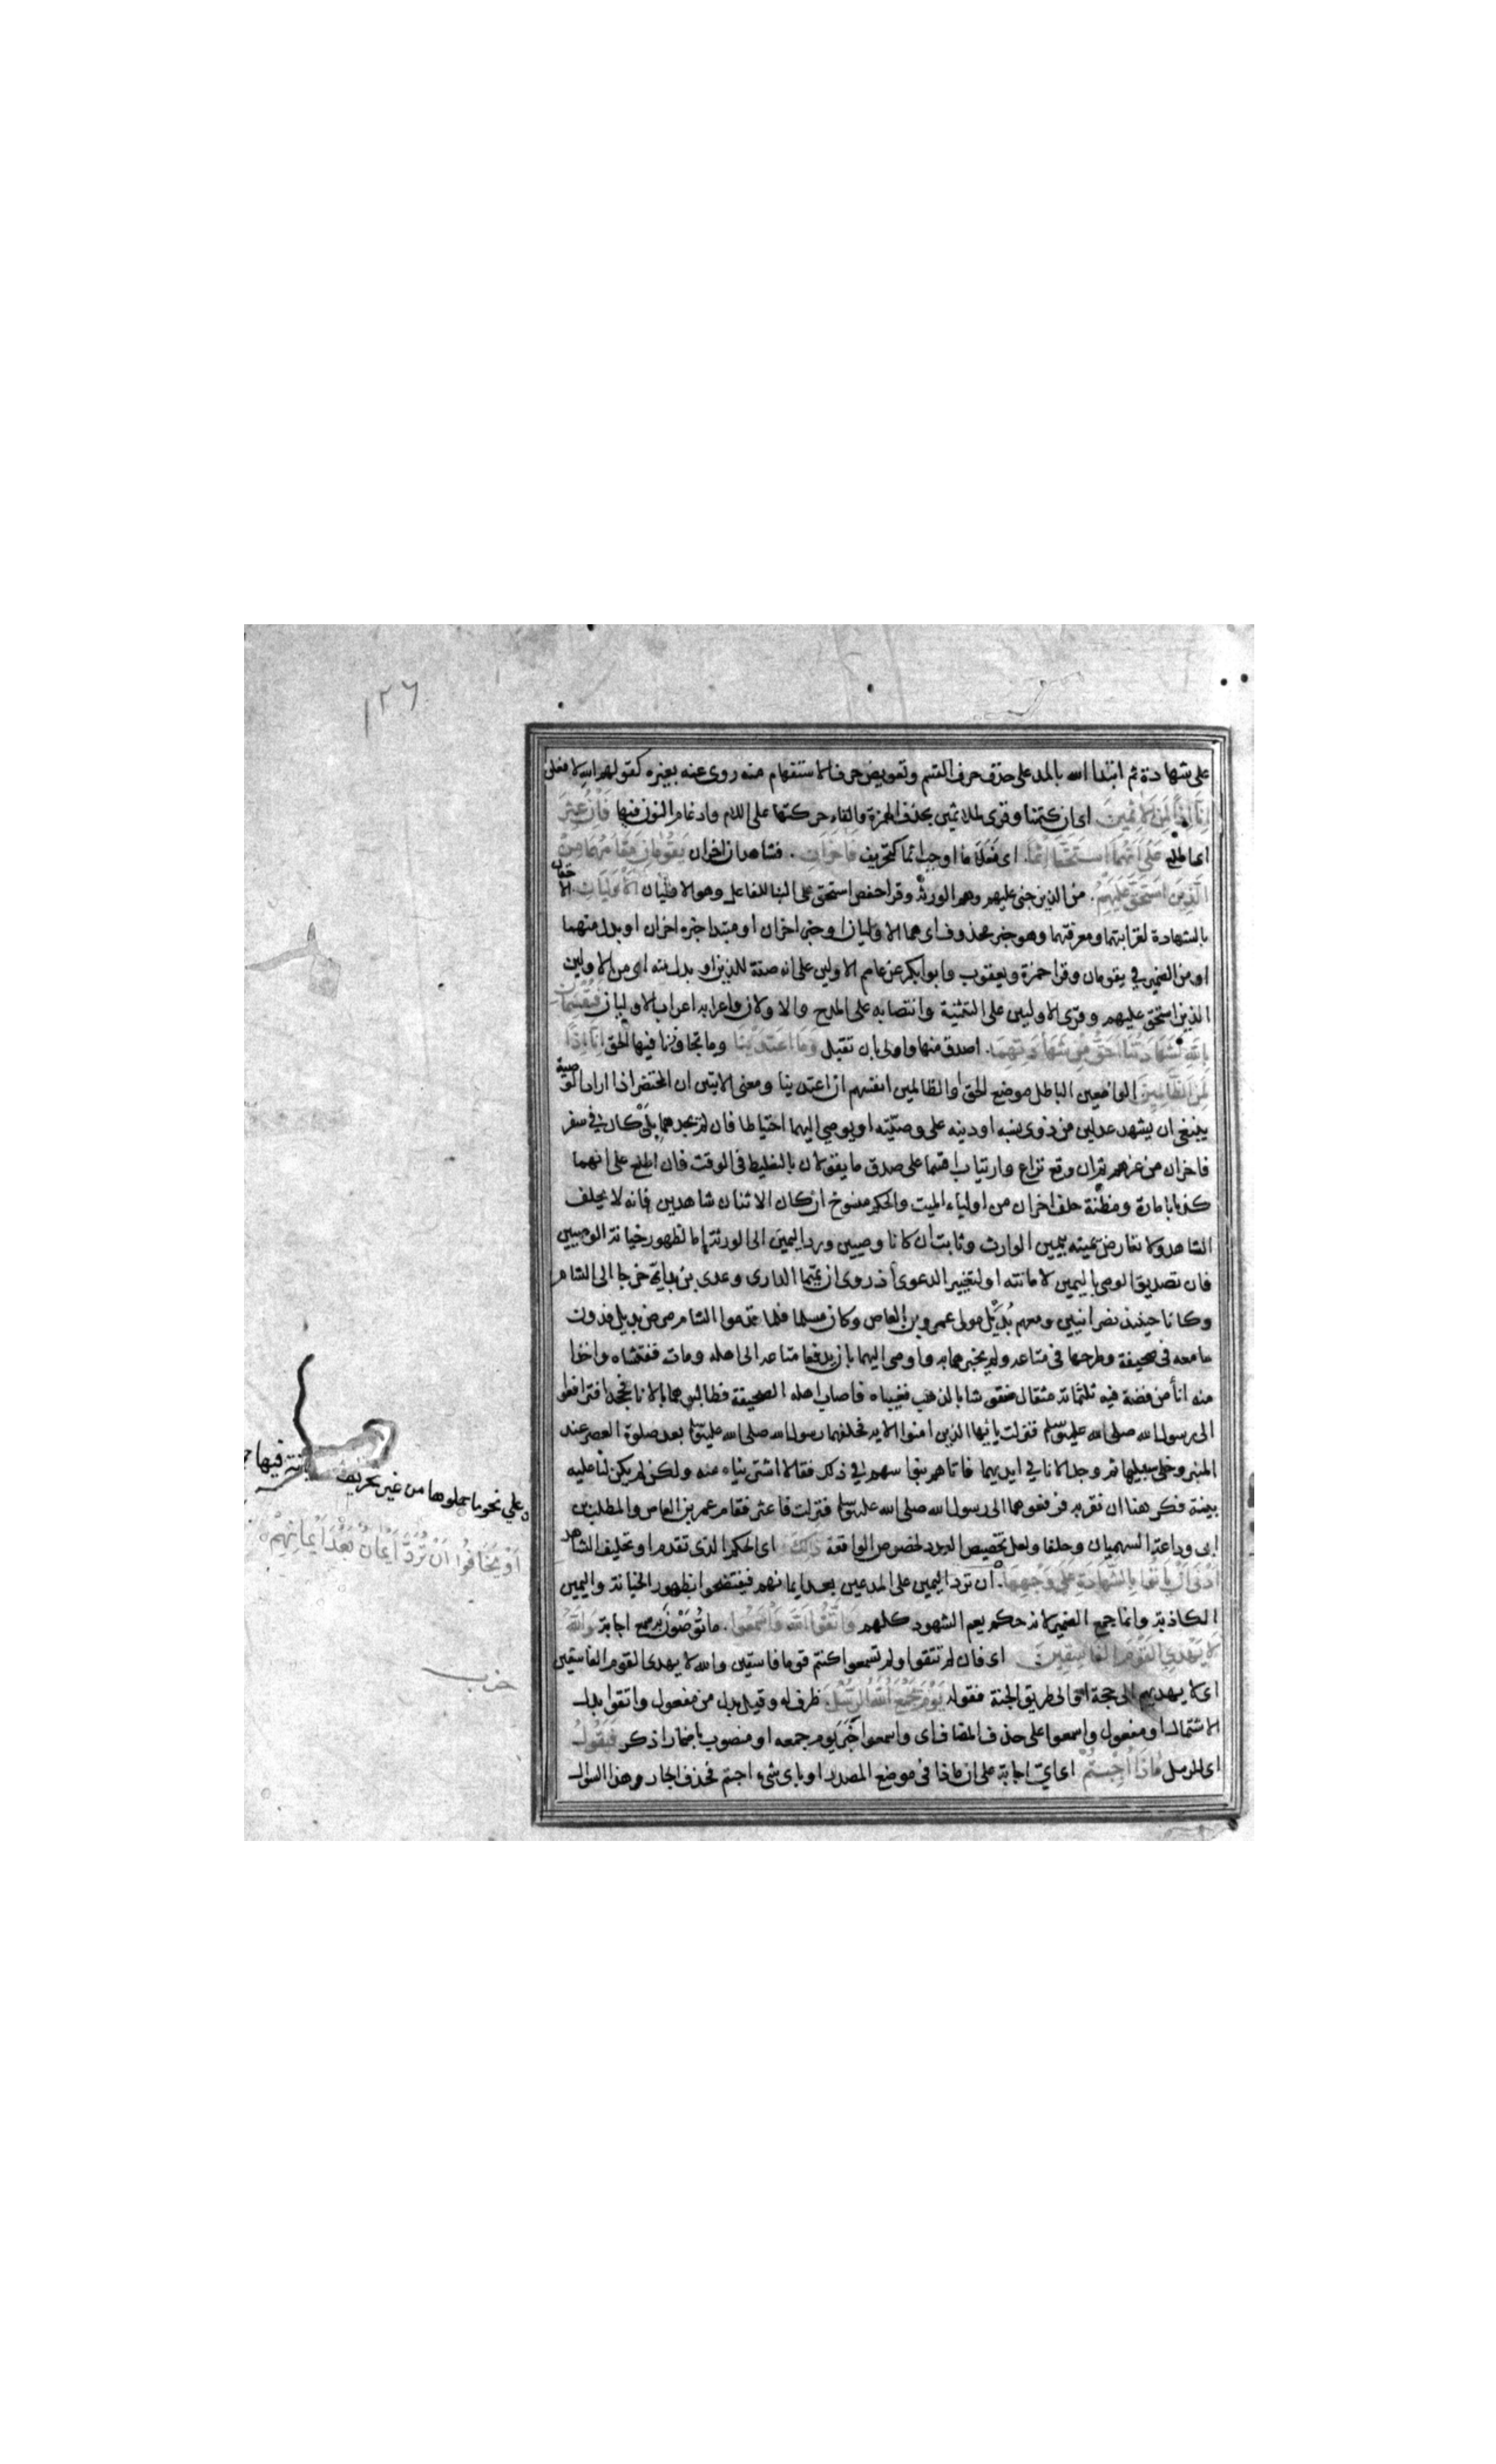 ١٢٦
على شهادة ثم ابتدا الله بالمد على حذف حرف القسم وتعويض حرف الاستفهام منه روى عنه بغيره كقولهم الله لافعلن
إِنَّا إِذًا لَمِنَ الْآثِمِينَ اى ان كتمنا وقرى لملاثمين بحذف الهمزة والقاء حركتها على اللام وادغام النون فيها فَإِنْ عُثِرَ
اى اطلع عَلَى أَنَّهُمَا اسْتَحَقَّا إِثْمًا اى فعلا ما اوجب اثما كتحريف فَآخَرَانِ فشاهدان اخران يَقُومَانِ مَقَامَهُمَا مِنَ
الَّذِينَ اسْتَحَقَّ عَلَيْهِمُ من الذين جنى عليهم وهم الورثة وقرا حفص استحق على البنا للفاعل وهو الاوليان الْأَوْلَيَانِ الاحقان
بالشهادة لقرابتهما ومعرفتهما وهو خبر محذوف اى هما الاوليان او خبر اخران او مبتدا خبره اخران او بدل منهما
او من الضمير في يقومان وقرا حمزة ويعقوب وابوبكر عن عاصم الاولين على انه صفة للذين او بدل منه اى من الاولين
الذين استحق عليهم وقرى الاولين على التثنية وانتصابه على المدح والاولان واعرابه اعراب الاوليان فَيُقْسِمَانِ
بِاللَّهِ لَشَهَادَتُنَا أَحَقُّ مِنْ شَهَادَتِهِمَا اصدق منها واولى بان تقبل وَمَا اعْتَدَيْنَا وما تجاوزنا فيها الحق إِنَّا إِذًا
لَمِنَ الظَّالِمِينَ الواضعين الباطل موضع الحق او الظالمين انفسهم ان اعتدينا ومعنى الايتين ان المحتضر اذا اراد الوصية
ينبغى ان يشهد عدلين من ذوى نسبه او دينه على وصيته او يوصي اليهما احتياطا فان لم يجدهما بان كان في سفر
فاخران من غيرهم ثم ان وقع نزاع وارتياب اقسما على صدق ما يقولان بالتغليظ فى الوقت فان اطلع على انهما
كذبا بامارة ومظنة حلف اخران من اولياء الميت والحكم منسوخ ان كان الاثنان شاهدين فانه لا يحلف
الشاهد ولا تعارض يمينه بيمين الوارث وثابت ان كانا وصيين ورد اليمين الى الورثة إما لظهور خيانة الوصيين
فان تصديق الوصى باليمين لامانته او لتغيير الدعوى اذ روى ان تميما الدارى وعدى بن بداء خرجا الى الشام
وكانا حينئذ نصرانيين ومعهم بُدَيْل مولى عمرو بن العاص وكان مسلما فلما قدموا الشام مرض بديل فدون
ما معه فى صحيفة وطرحها فى متاعه ولم يخبرهما به واوصى اليهما بان يدفعا متاعه الى اهله ومات ففتشاه واخذا
منه انأ من فضة فيه ثلثمائة مثقال منقوشا بالذهب فغيباه فاصاب اهله الصحيفة فطالبوهما بالاناء فجحدا فترافعوا
الى رسول الله صلى الله عليه وسلم فنزلت يا ايها الذين امنوا الاية فحلفهما رسول الله صلى الله عليه وسلم بعد صلوة العصر عند
المنبر وخلى سبيلهما ثم وجد الاناء في ايديهما فاتاهم بنوا سهم في ذلك فقالا اشتريناه منه ولكن لم يكن لنا عليه
بينة فكرهنا ان نقر به فرفعوهما الى رسول الله صلى الله عليه وسلم فنزلت فان عثر فقام عمرو بن العاص والمطلب بن
ابى وداعة السهميان وحلفا ولعل تخصيص العدد لخصوص الواقعة ذَلِكَ اى الحكم الذى تقدم او تحليف الشاهد
أَدْنَى أَنْ يَأْتُوا بِالشَّهَادَةِ عَلَى وَجْهِهَا ان ترد اليمين على المدعين بعد ايمانهم فيفتضحوا بظهور الخيانة واليمين
الكاذبة وانما جمع الضمير لانه حكم يعم الشهود كلهم وَاتَّقُوا اللَّهَ وَاسْمَعُوا ما توصون به سمع اجابة وَاللَّهُ
لَا يَهْدِي الْقَوْمَ الْفَاسِقِينَ اى فان لم تتقوا ولم تسمعوا كنتم قوما فاسقين والله لا يهدى القوم الفاسقين
اى لا يهديهم الى حجة او الى طريق الجنة فقوله يَوْمَ يَجْمَعُ اللَّهُ الرُّسُلَ ظرف له وقيل بدل من مفعول واتقوا بدل
الاشتمال او مفعول واسمعوا على حذف المضاف اى واسمعوا خبر يوم جمعه او منصوب باضمار اذكر فَيَقُولُ
اى للرسل مَاذَا أُجِبْتُمْ اى اى اجابة على ان ماذا فى موضع المصدر او باى شىء اجبتم فحذف الجار وهذا السوال
على نحو ما حملوها من غير تحريف فيها
أَوْ يَخَافُوا أَنْ تُرَدَّ أَيْمَانٌ بَعْدَ أَيْمَانِهِمْ
حزب